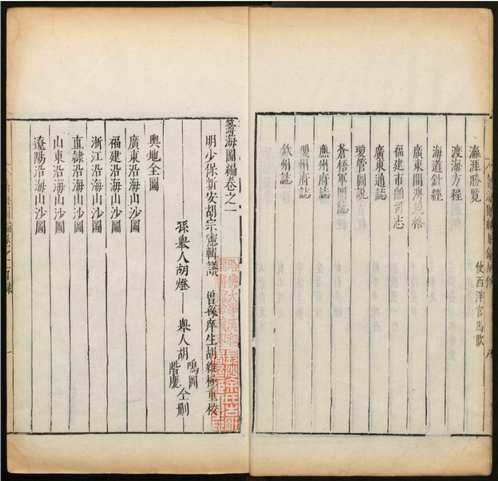 瀛涯勝覽
使西洋官馬歡
渡海方程
海道針經
廣東
福建市舶司志
廣東通誌
碧管圖説
蒼梧軍門誌
惠州府誌
州府誌
欽州誌
籌海圖編卷之一
明少保新安胡宗憲輯議 曾孫庠生胡維極重校
孫舉人胡燈 舉人胡鳴岡 階慶 仝刪
輿地全圖
廣東沿海山沙圖
福建沿海山沙圖
浙江沿海山沙圖
直隸沿海山沙圖
山東沿海山沙圖
遼陽沿海山沙圖